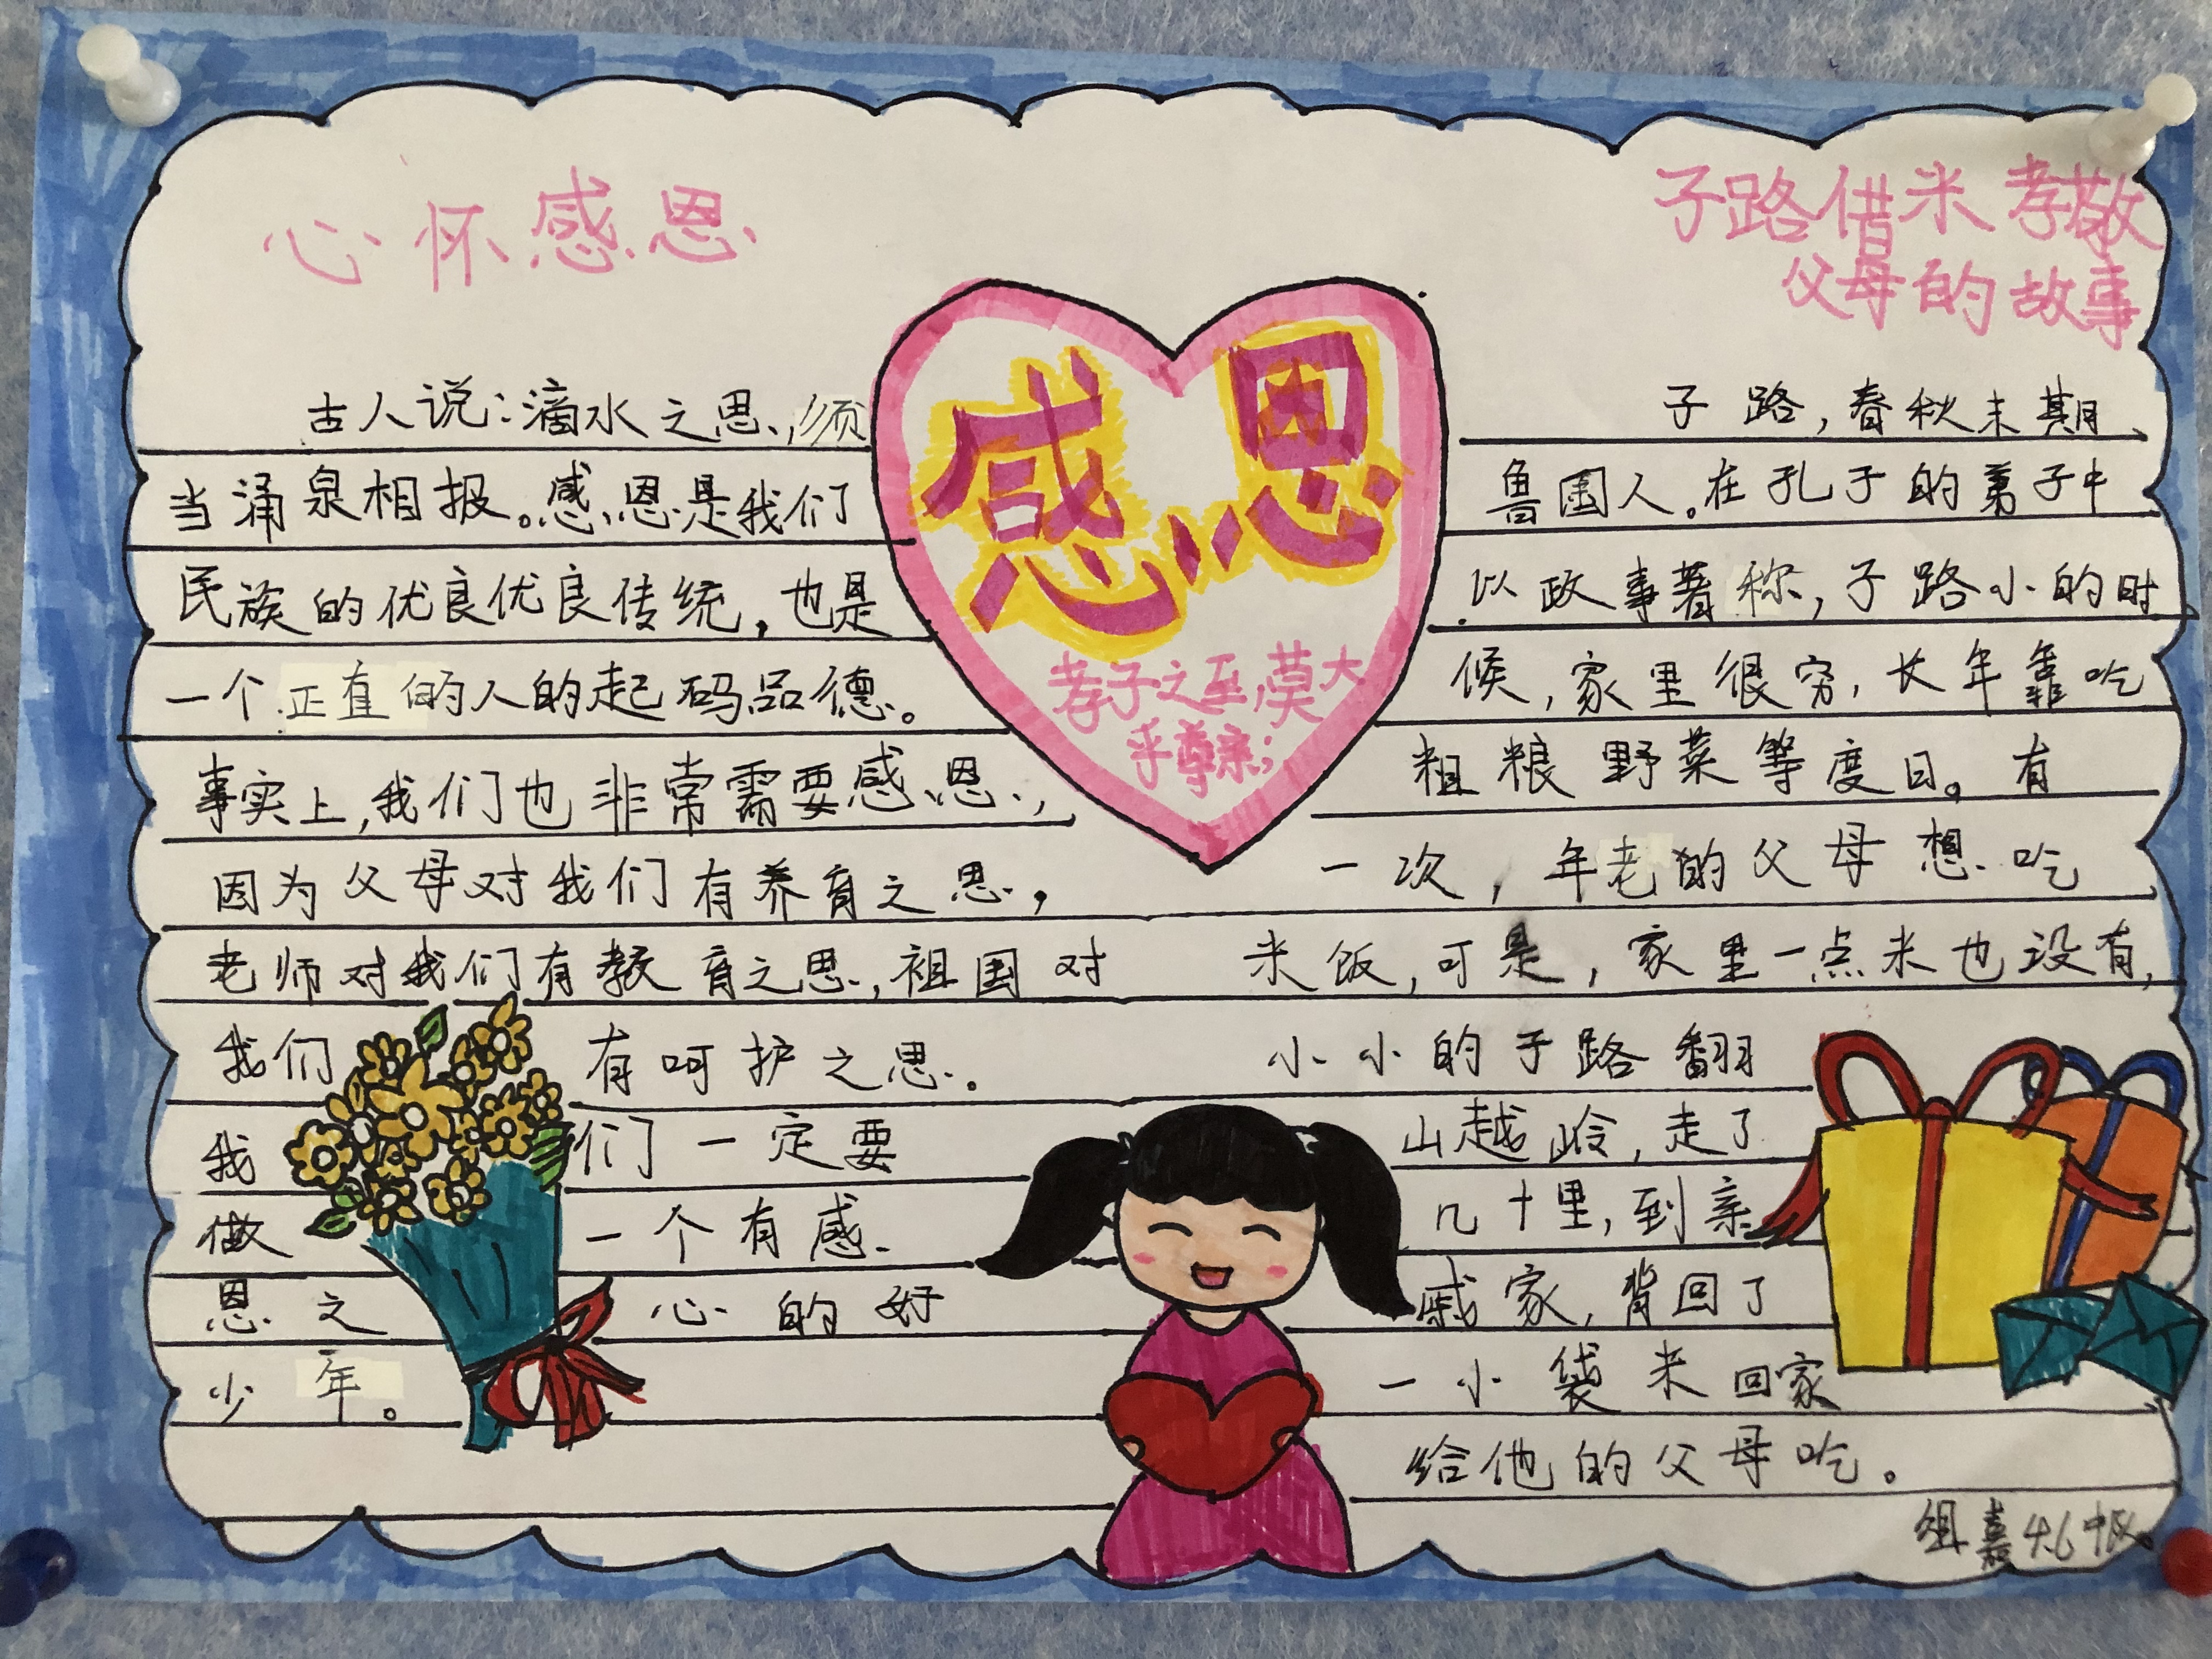 心怀感恩
古人说:滴水之恩,须
当涌泉相报。感恩是我们
民族的优良优良传统,也是
一个正直的人的起码品德。
事实上,我们也非常需要感恩,
因为父母对我们有养育之恩,
老师对我们有教育之恩,祖国对
我们有呵护之恩。
我们一定要
做一个有感
恩之心的好
少年。
感恩
孝子之至,莫大
乎尊亲;
子路借米孝敬
父母的故事
子路,春秋末期
鲁国人。在孔子的弟子中
以政事著称,子路小的时
候,家里很穷,长年靠吃
粗粮野菜等度日。有
一次,年老的父母想吃
米饭,可是,家里一点米也没有,
小小的子路翻
山越岭,走了
几十里,到亲
戚家,背回了
一小袋米回家
给他的父母吃。